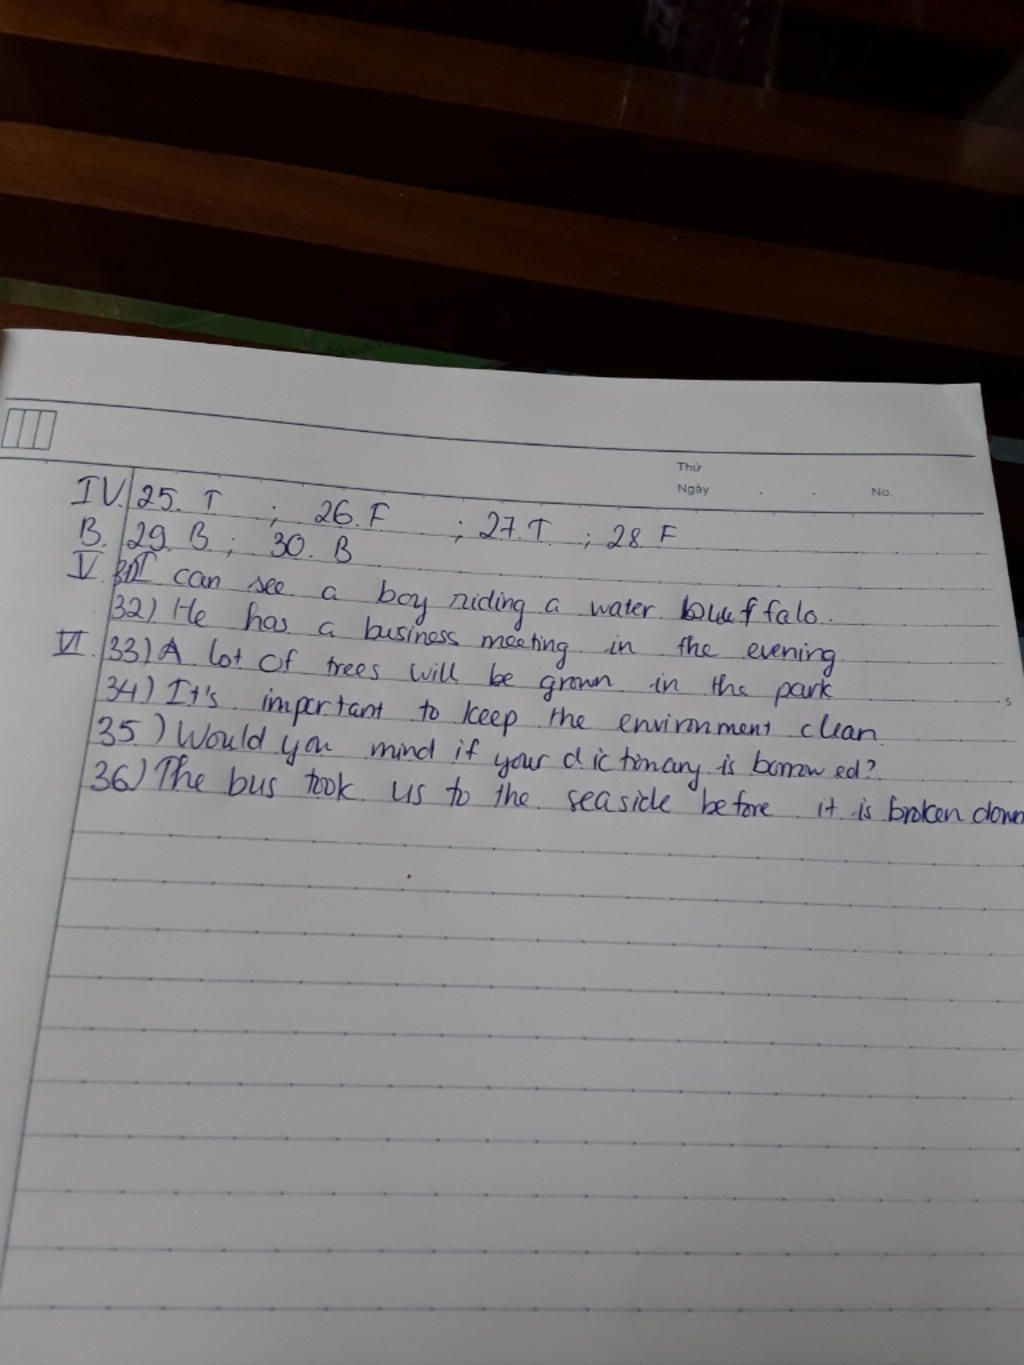 Thứ
Ngày . . No.
IV. 25. T ; 26. F ; 27. T ; 28 F
B. 29. B ; 30. B
V. I can see a boy riding a water buffalo.
32) He has a business meeting in the evening
VI. 33) A lot of trees will be grown in the park
34) It's important to keep the environment clean
35.) Would you mind if your dictionary is borrowed?
36) The bus took us to the seaside before it is broken down